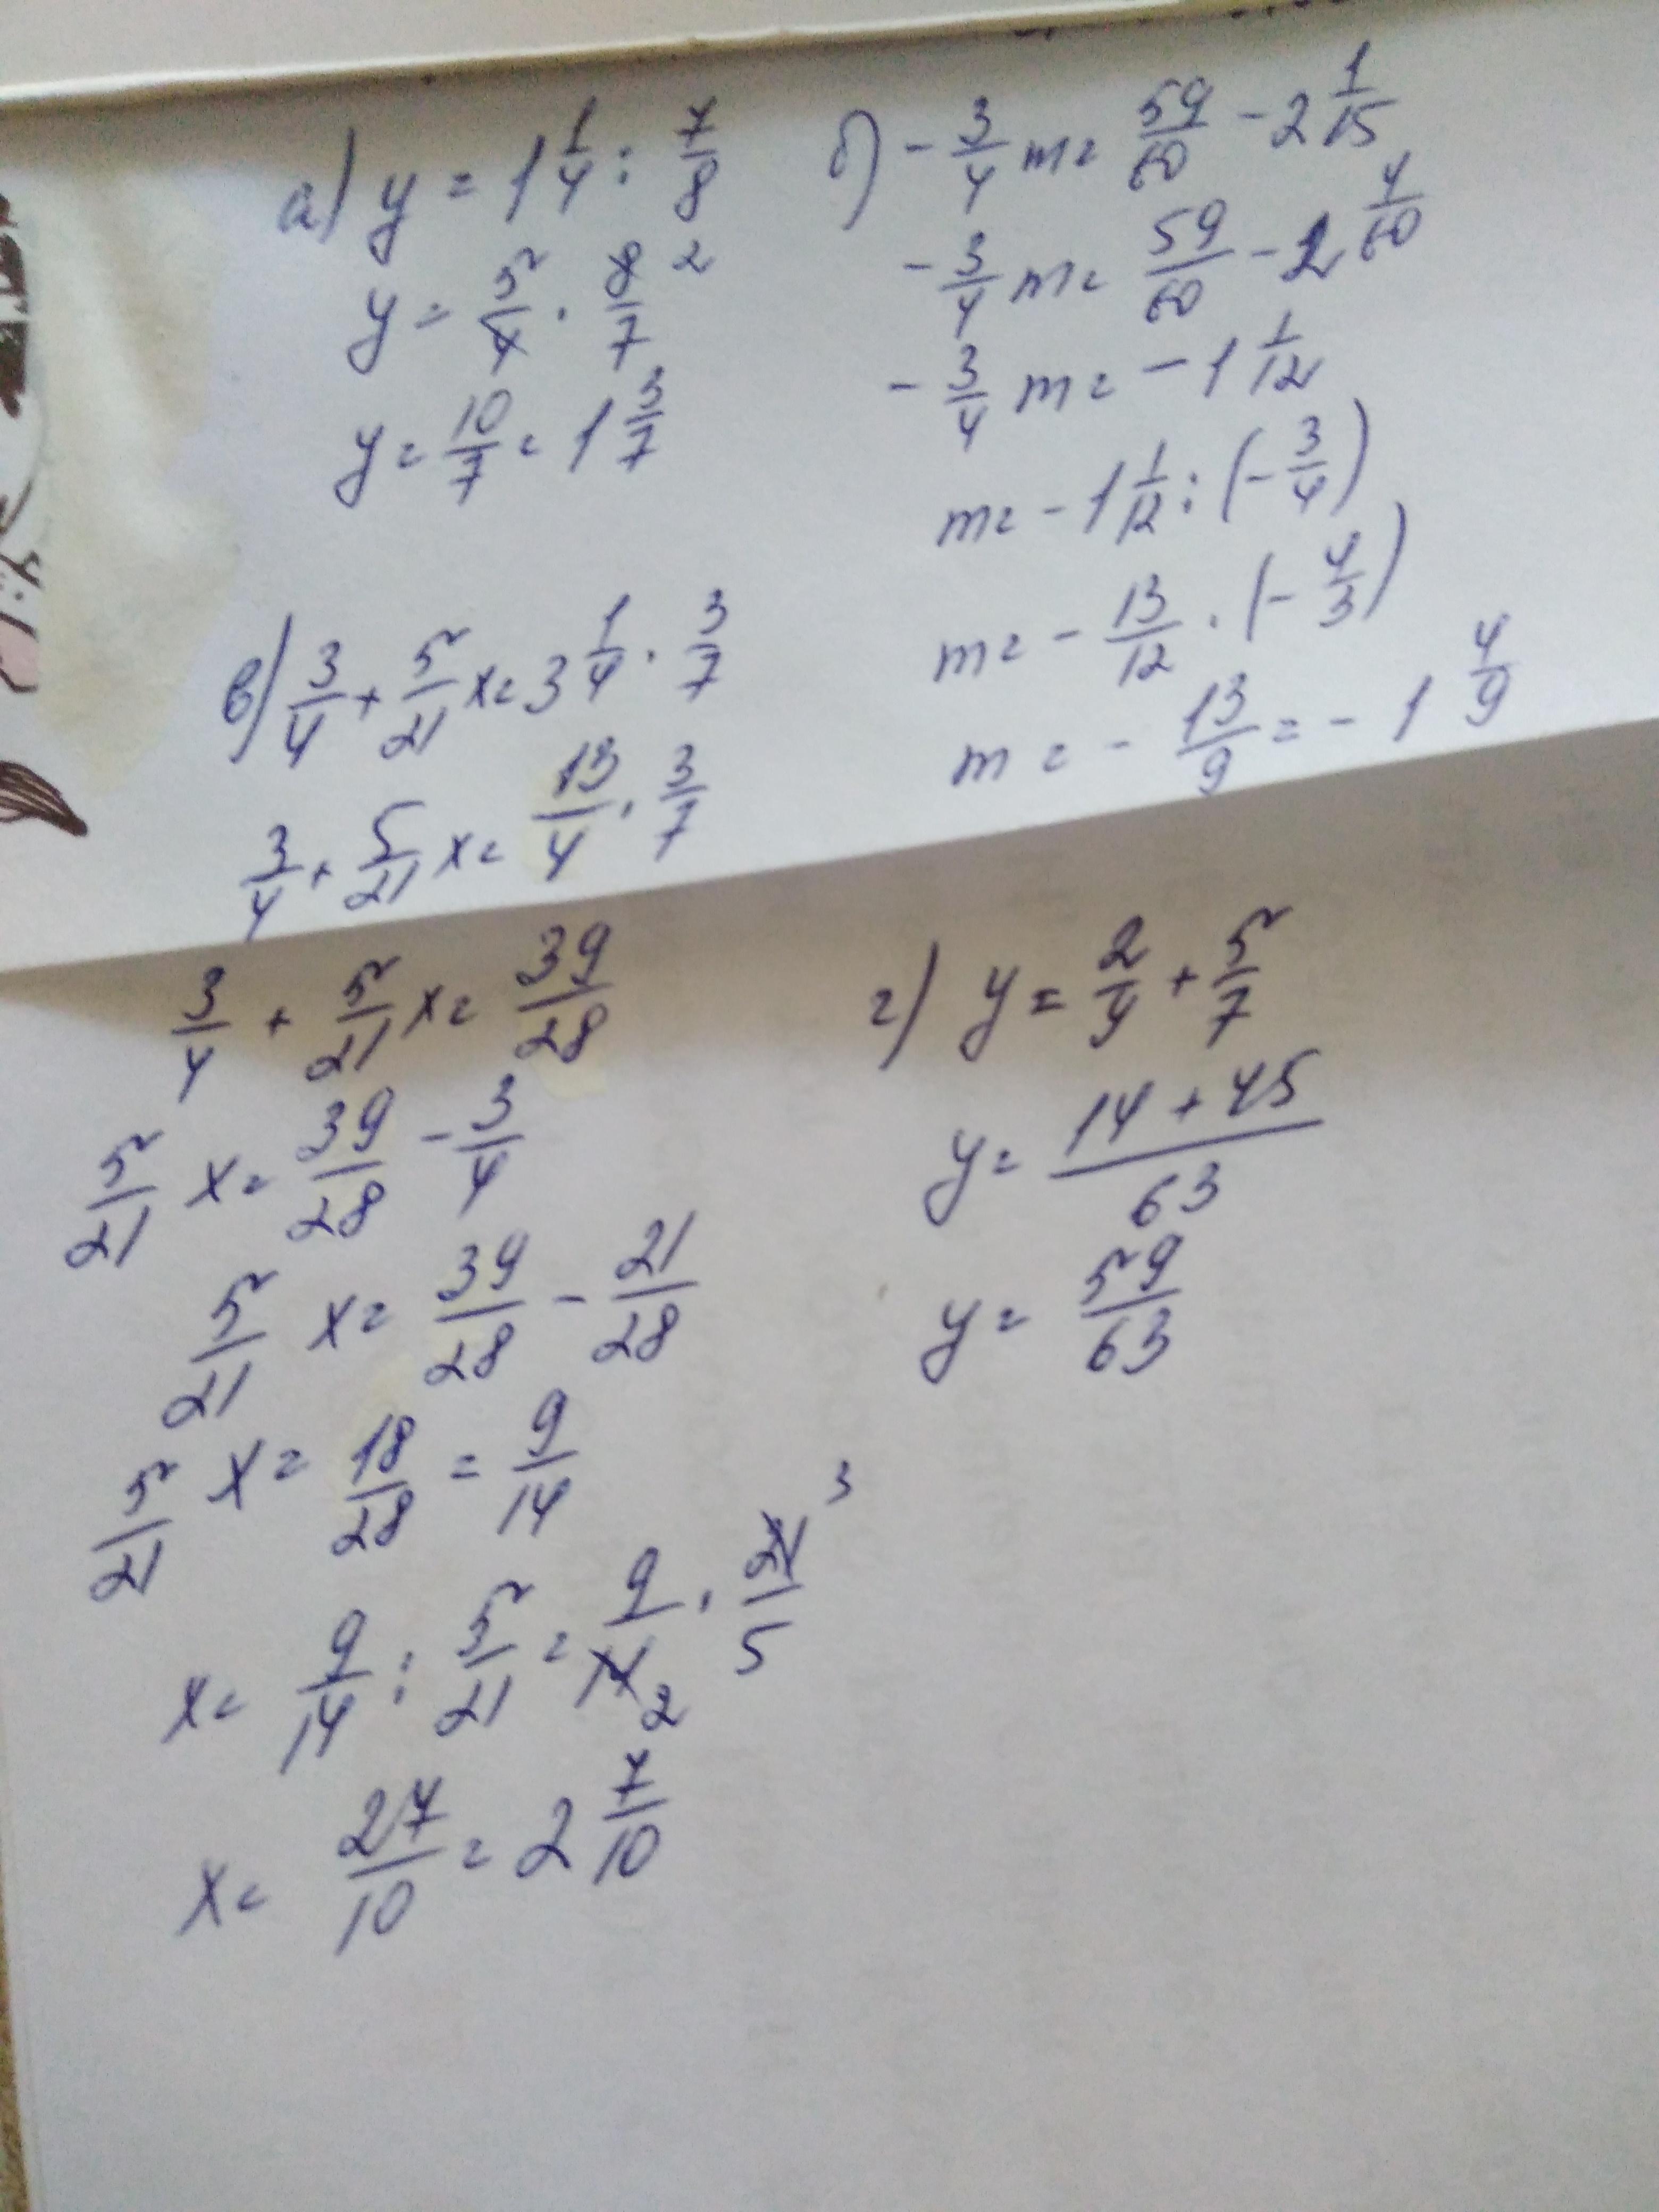 а) y = 1 1/4 : 7/8
y = 5/4 · 8/7 2
y = 10/7 = 1 3/7
б) - 3/4 m = 59/60 - 2 1/15
- 3/4 m = 59/60 - 2 4/60
- 3/4 m = - 1 1/12
m = - 1 1/12 : (- 3/4)
m = - 13/12 · (- 4/3)
m = - 13/9 = - 1 4/9
в) 3/4 + 5/21 x = 3 1/4 · 3/7
3/4 + 5/21 x = 13/4 · 3/7
3/4 + 5/21 x = 39/28
5/21 x = 39/28 - 3/4
5/21 x = 39/28 - 21/28
5/21 x = 18/28 = 9/14
x = 9/14 : 5/21 = 9/14 2 · 21 3/5
x = 27/10 = 2 7/10
г) y = 2/9 + 5/7
y = 14 + 45/63
y = 59/63